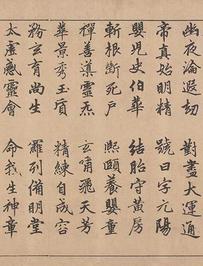 幽夜淪遐劫 對盡大運通
帝真始明精 號曰字元陽
嬰兒史伯華 結胎守黃房
斬根斷死戶 熙頤養嬰童
禪善導靈炁 玄哺飛天芳
華景秀玉質 精練自成容
務玄育尚生 羅列備明堂
太虛感靈會 命我生神章